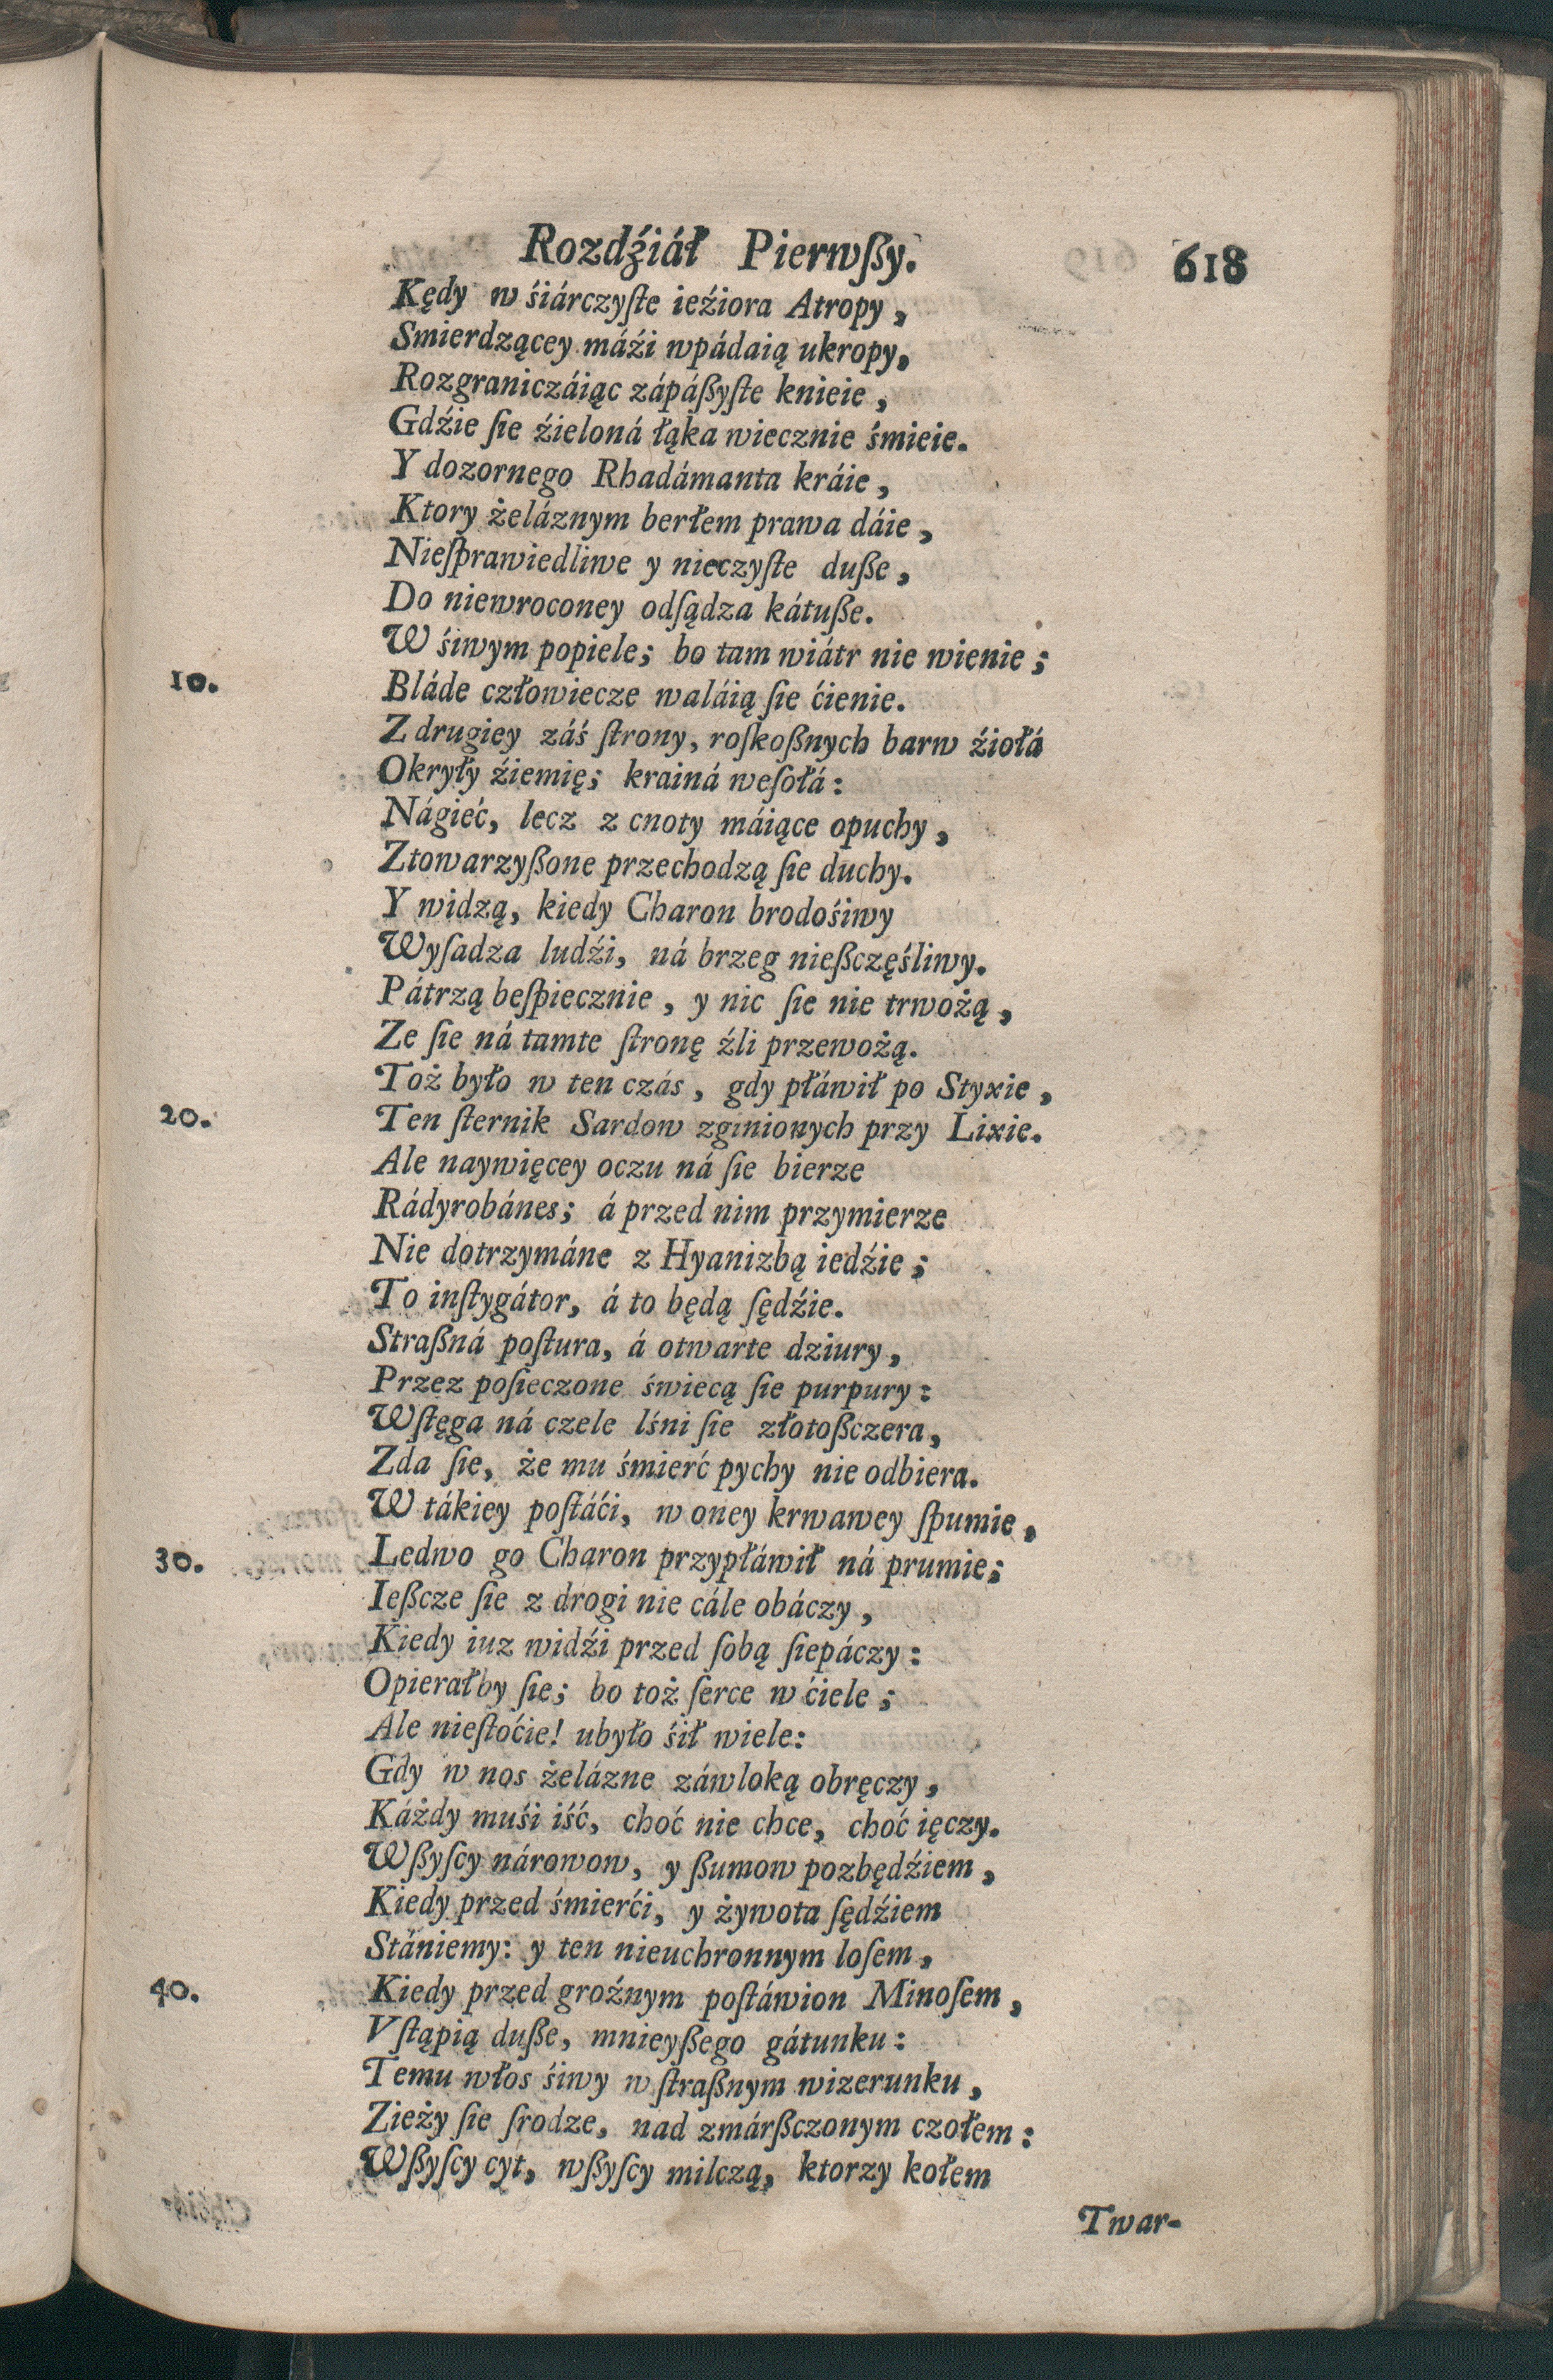 Rozdźiáł Pierwßy. 618
Kędy w śiárczyſte ieźiora Atropy,
Smierdzącey máźi wpádaią ukropy,
Rozgraniczáiąc zápáßyſte knieie,
Gdźie ſie źieloná łąka wiecznie śmieie.
Y dozornego Rhadámanta kráie,
Ktory żeláznym berłem prawa dáie,
Nieſprawiedliwe y nieczyſte duße,
Do niewroconey odſądza kátuße.
W śiwym popiele; bo tam wiátr nie wienie;
10. Bláde człowiecze waláią ſie ćienie.
Z drugiey záś ſtrony, roſkoßnych barw źiołá
Okryły źiemię; krainá weſołá:
Nágieć, lecz z cnoty máiące opuchy,
Ztowarzyßone przechodzą ſie duchy.
Y widzą, kiedy Charon brodośiwy
Wyſadza ludźi, ná brzeg nießczęśliwy.
Pátrzą beſpiecznie, y nic ſie nie trwożą,
Ze ſie ná tamte ſtronę źli przewożą.
Toż było w ten czás, gdy płáwił po Styxie,
20. Ten ſternik Sardow zginionych przy Lixie.
Ale naywięcey oczu ná ſie bierze
Rádyrobánes; á przed nim przymierze
Nie dotrzymáne z Hyanizbą iedźie;
To inſtygátor, á to będą ſędźie.
Straßná poſtura, á otwarte dziury,
Przez posieczone świecą ſie purpury:
Wſtęga ná czele lśni ſie złotoßczera,
Zda ſie, że mu śmierć pychy nie odbiera.
W tákiey poſtáći, w oney krwawey ſpumie,
30. Ledwo go Charon przypłáwił ná prumie;
Ießcze ſie z drogi nie cále obáczy,
Kiedy iuz widźi przed ſobą ſiepáczy:
Opierałby ſie; bo toż ſerce w ćiele;
Ale nieſtoćie! ubyło śił wiele:
Gdy w nos żelázne záwloką obręczy,
Káżdy muśi iść, choć nie chce, choć ięczy.
Wßyſcy nárowow, y ßumow pozbędźiem,
Kiedy przed śmierći, y żywota ſędźiem
Stániemy: y ten nieuchronnym loſem,
40. Kiedy przed groźnym poſtáwion Minoſem,
Vſtąpią duße, mnieyßego gátunku:
Temu włos śiwy w ſtraßnym wizerunku,
Zieży ſie ſrodze, nad zmárßczonym czołem:
Wßyſcy cyt, wßyſcy milczą, ktorzy kołem
Twar-